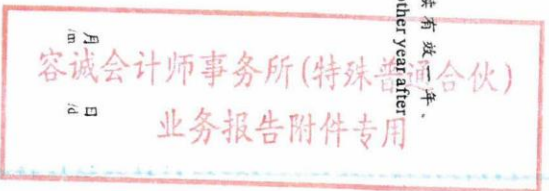 续有效一年。
other year after
月 日
/m /d
容诚会计师事务所(特殊普通合伙)
业务报告附件专用